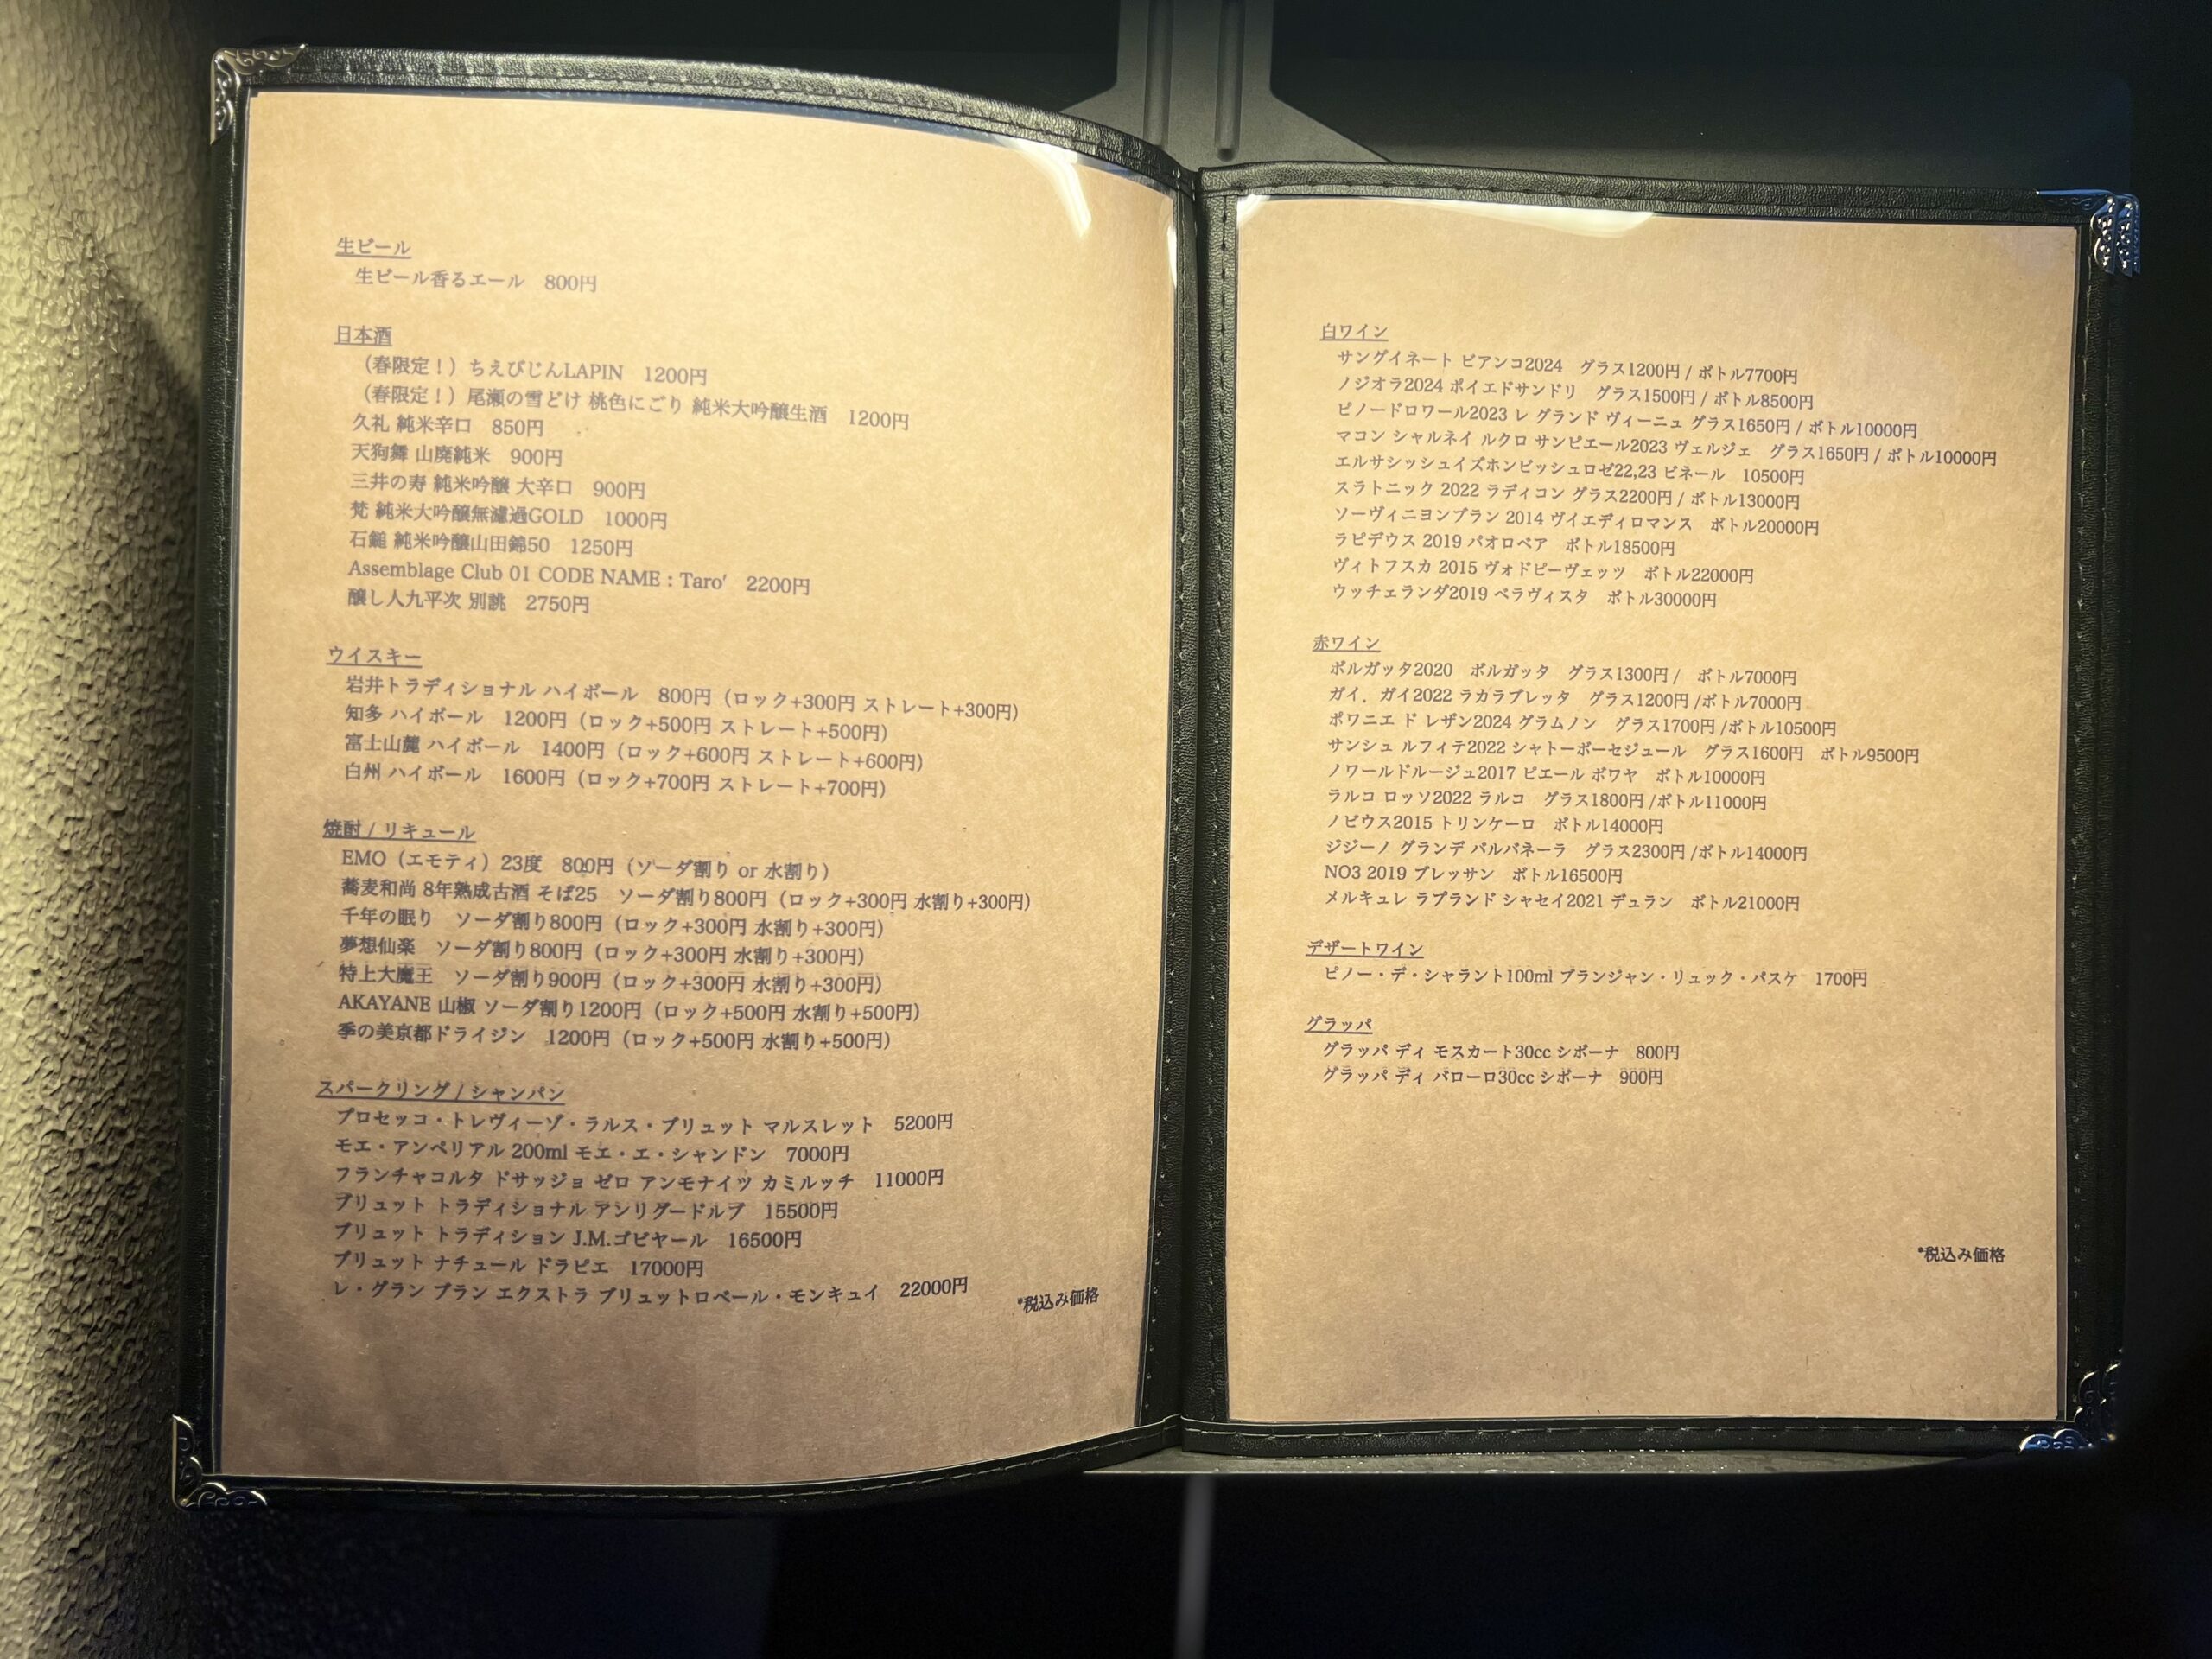 生ビール
生ビール香るエール　800円
日本酒
（春限定！）ちえびじんLAPIN　1200円
（春限定！）尾瀬の雪どけ 桃色にごり 純米大吟醸生酒　1200円
久礼 純米辛口　850円
天狗舞 山廃純米　900円
三井の寿 純米吟醸 大辛口　900円
梵 純米大吟醸無濾過GOLD　1000円
石鎚 純米吟醸山田錦50　1250円
Assemblage Club 01 CODE NAME : Taro'　2200円
醸し人九平次 別誂　2750円
ウイスキー
岩井トラディショナル ハイボール　800円（ロック+300円 ストレート+300円）
知多 ハイボール　1200円（ロック+500円 ストレート+500円）
富士山麓 ハイボール　1400円（ロック+600円 ストレート+600円）
白州 ハイボール　1600円（ロック+700円 ストレート+700円）
焼酎 / リキュール
EMO（エモティ）23度　800円（ソーダ割り or 水割り）
蕎麦和尚 8年熟成古酒 そば25　ソーダ割り800円（ロック+300円 水割り+300円）
千年の眠り　ソーダ割り800円（ロック+300円 水割り+300円）
夢想仙楽　ソーダ割り800円（ロック+300円 水割り+300円）
特上大魔王　ソーダ割り900円（ロック+300円 水割り+300円）
AKAYANE 山椒 ソーダ割り1200円（ロック+500円 水割り+500円）
季の美京都ドライジン　1200円（ロック+500円 水割り+500円）
スパークリング / シャンパン
プロセッコ・トレヴィーゾ・ラルス・ブリュット マルスレット　5200円
モエ・アンペリアル 200ml モエ・エ・シャンドン　7000円
フランチャコルタ ドサッジョ ゼロ アンモナイツ カミルッチ　11000円
ブリュット トラディショナル アンリグードルブ　15500円
ブリュット トラディション J.M.ゴビヤール　16500円
ブリュット ナチュール ドラピエ　17000円
レ・グラン ブラン エクストラ ブリュットロベール・モンキュイ　22000円
*税込み価格
白ワイン
サングイネート ビアンコ2024　グラス1200円 / ボトル7700円
ノジオラ2024 ポイエドサンドリ　グラス1500円 / ボトル8500円
ピノードロワール2023 レ グランド ヴィーニュ グラス1650円 / ボトル10000円
マコン シャルネイ ルクロ サンピエール2023 ヴェルジェ　グラス1650円 / ボトル10000円
エルサシッシュイズホンビッシュロゼ22,23 ビネール　10500円
スラトニック 2022 ラディコン グラス2200円 / ボトル13000円
ソーヴィニヨンブラン 2014 ヴイエディロマンス　ボトル20000円
ラピデウス 2019 パオロペア　ボトル18500円
ヴィトフスカ 2015 ヴォドピーヴェッツ　ボトル22000円
ウッチェランダ2019 ベラヴィスタ　ボトル30000円
赤ワイン
ボルガッタ2020　ボルガッタ　グラス1300円 /　ボトル7000円
ガイ．ガイ2022 ラカラブレッタ　グラス1200円 /ボトル7000円
ポワニエ ド レザン2024 グラムノン　グラス1700円 /ボトル10500円
サンシュ ルフィテ2022 シャトーボーセジュール　グラス1600円　ボトル9500円
ノワールドルージュ2017 ピエール ボワヤ　ボトル10000円
ラルコ ロッソ2022 ラルコ　グラス1800円 /ボトル11000円
ノビウス2015 トリンケーロ　ボトル14000円
ジジーノ グランデ バルバネーラ　グラス2300円 /ボトル14000円
NO3 2019 ブレッサン　ボトル16500円
メルキュレ ラプランド シャセイ2021 デュラン　ボトル21000円
デザートワイン
ピノー・デ・シャラント100ml ブランジャン・リュック・パスケ　1700円
グラッパ
グラッパ ディ モスカート30cc シボーナ　800円
グラッパ ディ バローロ30cc シボーナ　900円
*税込み価格